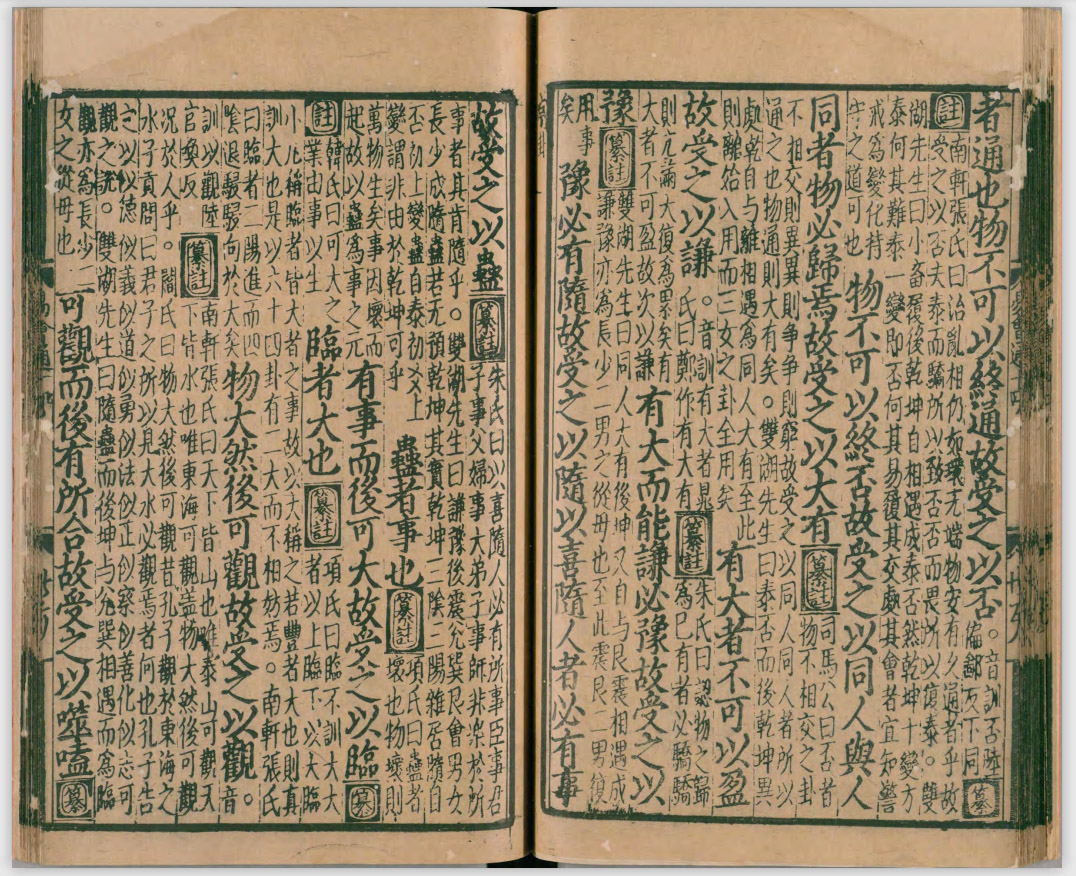 者通也物不可以終通故受之以否。音訓否陸備鄙反下同纂
註南軒張氏曰治亂相仍如環无端物安有久通者乎故
受之以否夫泰而驕所以致否否而畏所以復泰。雙
湖先生曰小畜履後乾坤自相遇成泰否然乾坤十變方
泰何其難泰一變即否何其易履其交處其會者宜知警
戒為變化持
守之道可也
物不可以終否故受之以同人與人
同者物必歸焉故受之以大有纂註
司馬公曰否者
物不相交之卦
不相交則異異則争争則窮故受之以同人同人者所以
通之也物通則大有矣。雙湖先生曰泰否而後乾坤異
處乾自与離相遇為同人大有至此
則離始入用而三女之卦全用矣
有大者不可以盈
故受之以謙。音訓大有晁
氏曰鄭作有大有
纂註
朱氏曰認物之歸
為已有者必驕驕
則亢滿大復為累矣有
大者不可盈故次以謙
有大而能謙必豫故受之以
豫纂註
雙湖先生曰同人大有後坤又自与艮震相遇成
謙豫亦為長少二男之從母也至此震艮二男復
用事
矣
豫必有隨故受之以隨以喜隨人者必有事
故受之以蠱纂註
朱氏曰以喜隨人必有所事臣事君
子事父婦事夫弟子事師非樂於所
事者其肯隨乎。雙湖先生曰謙豫後震兌巽艮會男女
長少成隨蠱若无預乾坤其實乾坤三陰三陽雜居隨自
否初上變蠱自泰初上
變謂非由於乾坤可乎
蠱者事也纂註
項氏曰蠱者
壞也物壞則
萬物生矣事因壞而
起故以蠱為事之元
有事而後可大故受之以臨纂
註
韓氏曰可大之
業由事以生
臨者大也纂註
項氏曰臨不訓大大
者以上臨下以大臨
小凡稱臨者皆大者之事故以大稱之若豐者大也則真
訓大也是以六十四卦有二大而不相妨焉。南軒張氏
曰臨者二陽進而四
陰退駸駸向於大矣
物大然後可觀故受之以觀。音
訓以觀陸
官喚反
纂註
南軒張氏曰天下皆山也唯泰山可觀天
下皆水也唯東海可觀盖物大然後可觀
況於人乎。閻氏曰物大然後可觀昔孔子觀於東海之
水子貢問曰君子之所以見大水必觀焉者何也孔子告
之以似德似義似道似勇似法似正似察似善化似志可
觀之說。雙湖先生曰隨蠱而後坤与兌巽相遇而為臨
觀亦為長少二
女之從母也
可觀而後有所合故受之以噬嗑纂